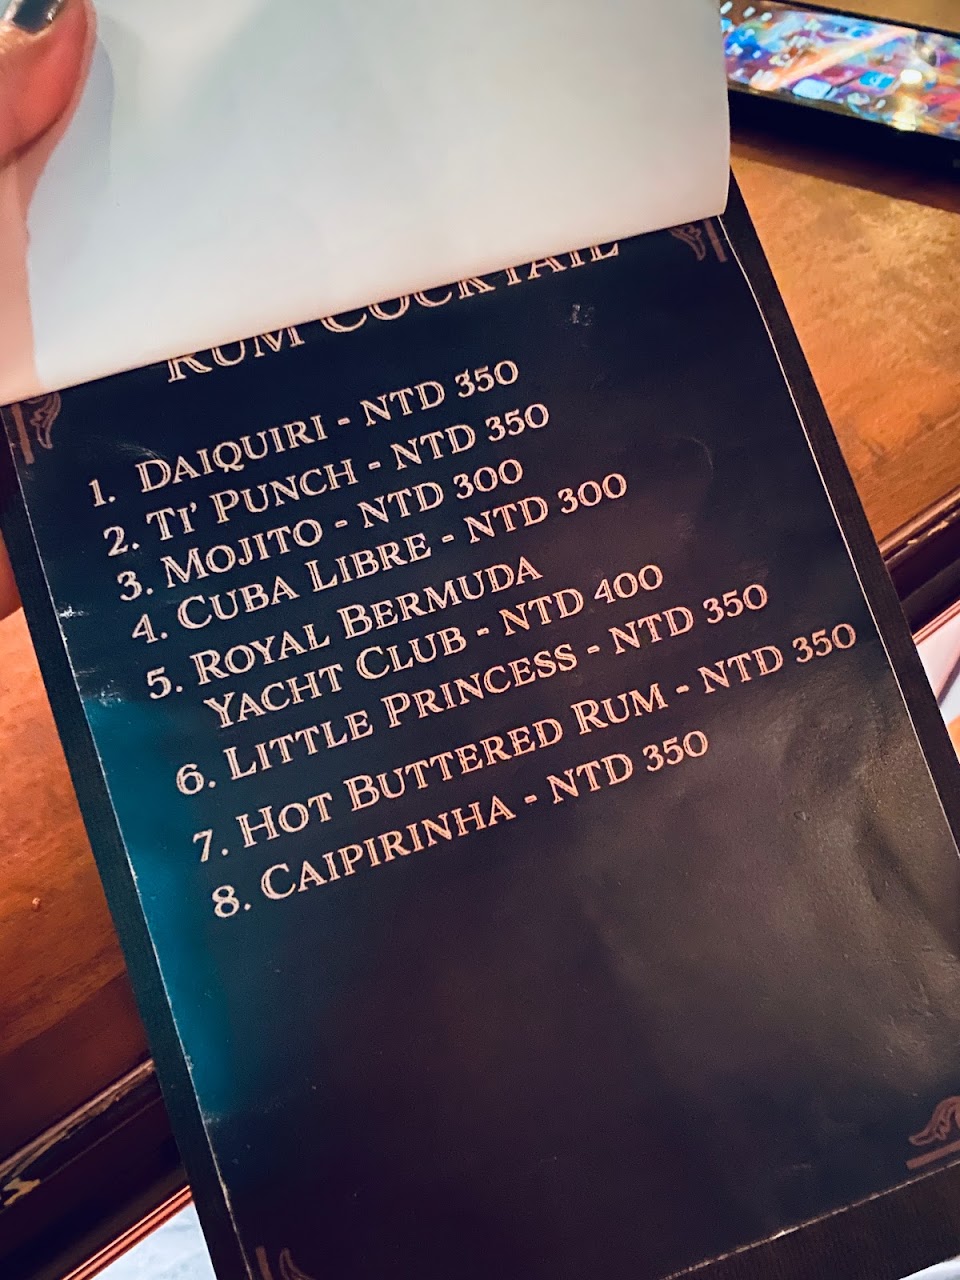 RUM COCKTAIL
1. DAIQUIRI - NTD 350
2. TI' PUNCH - NTD 350
3. MOJITO - NTD 300
4. CUBA LIBRE - NTD 300
5. ROYAL BERMUDA
YACHT CLUB - NTD 400
6. LITTLE PRINCESS - NTD 350
7. HOT BUTTERED RUM - NTD 350
8. CAIPIRINHA - NTD 350